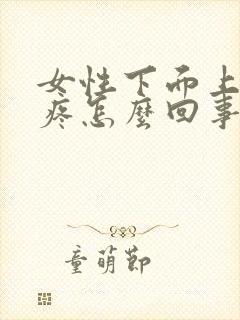 女性下面上
疼怎麼回事
童萌節